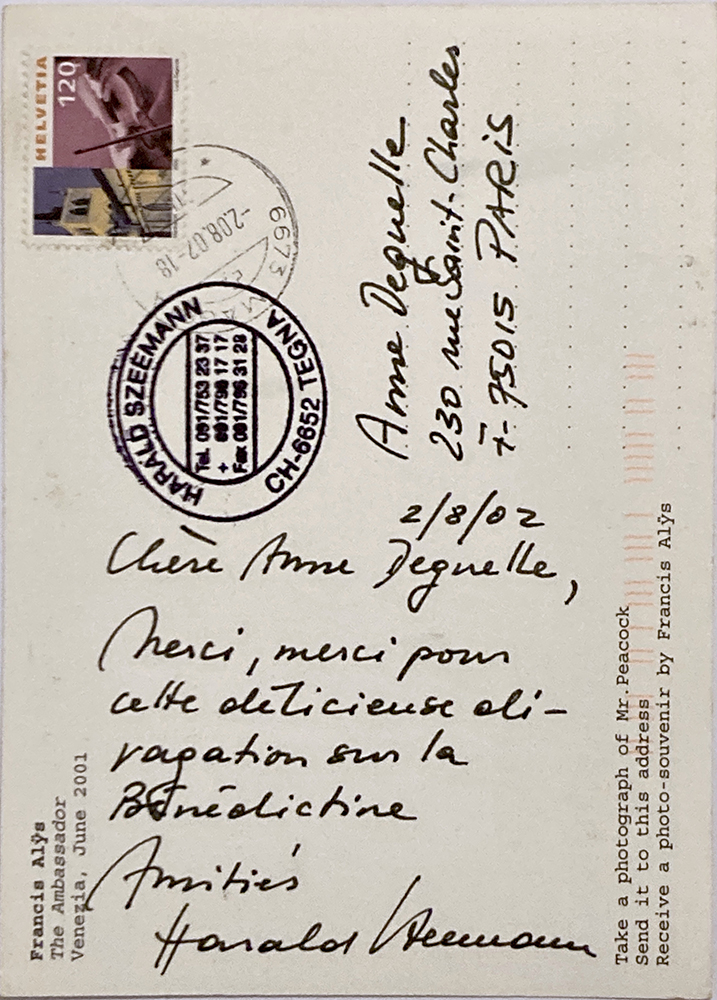 HELVETIA
120
-2.08.02-18
6673
HARALD SZEEMANN
Tel. 091/753 23 37
+ 091/796 17 17
Fax 091/796 31 29
CH-6652 TEGNA
Anne Deguelle
230 rue Saint-Charles
F- 75015 PARIS
2/8/02
Chère Anne Deguelle,
Merci, merci pour
cette délicieuse di-
vagation sur la
Bénédictine
Amitiés
Harald Szeemann
Francis Alÿs
The Ambassador
Venezia, June 2001
Take a photograph of Mr.Peacock
Send it to this address
Receive a photo-souvenir by Francis Alÿs